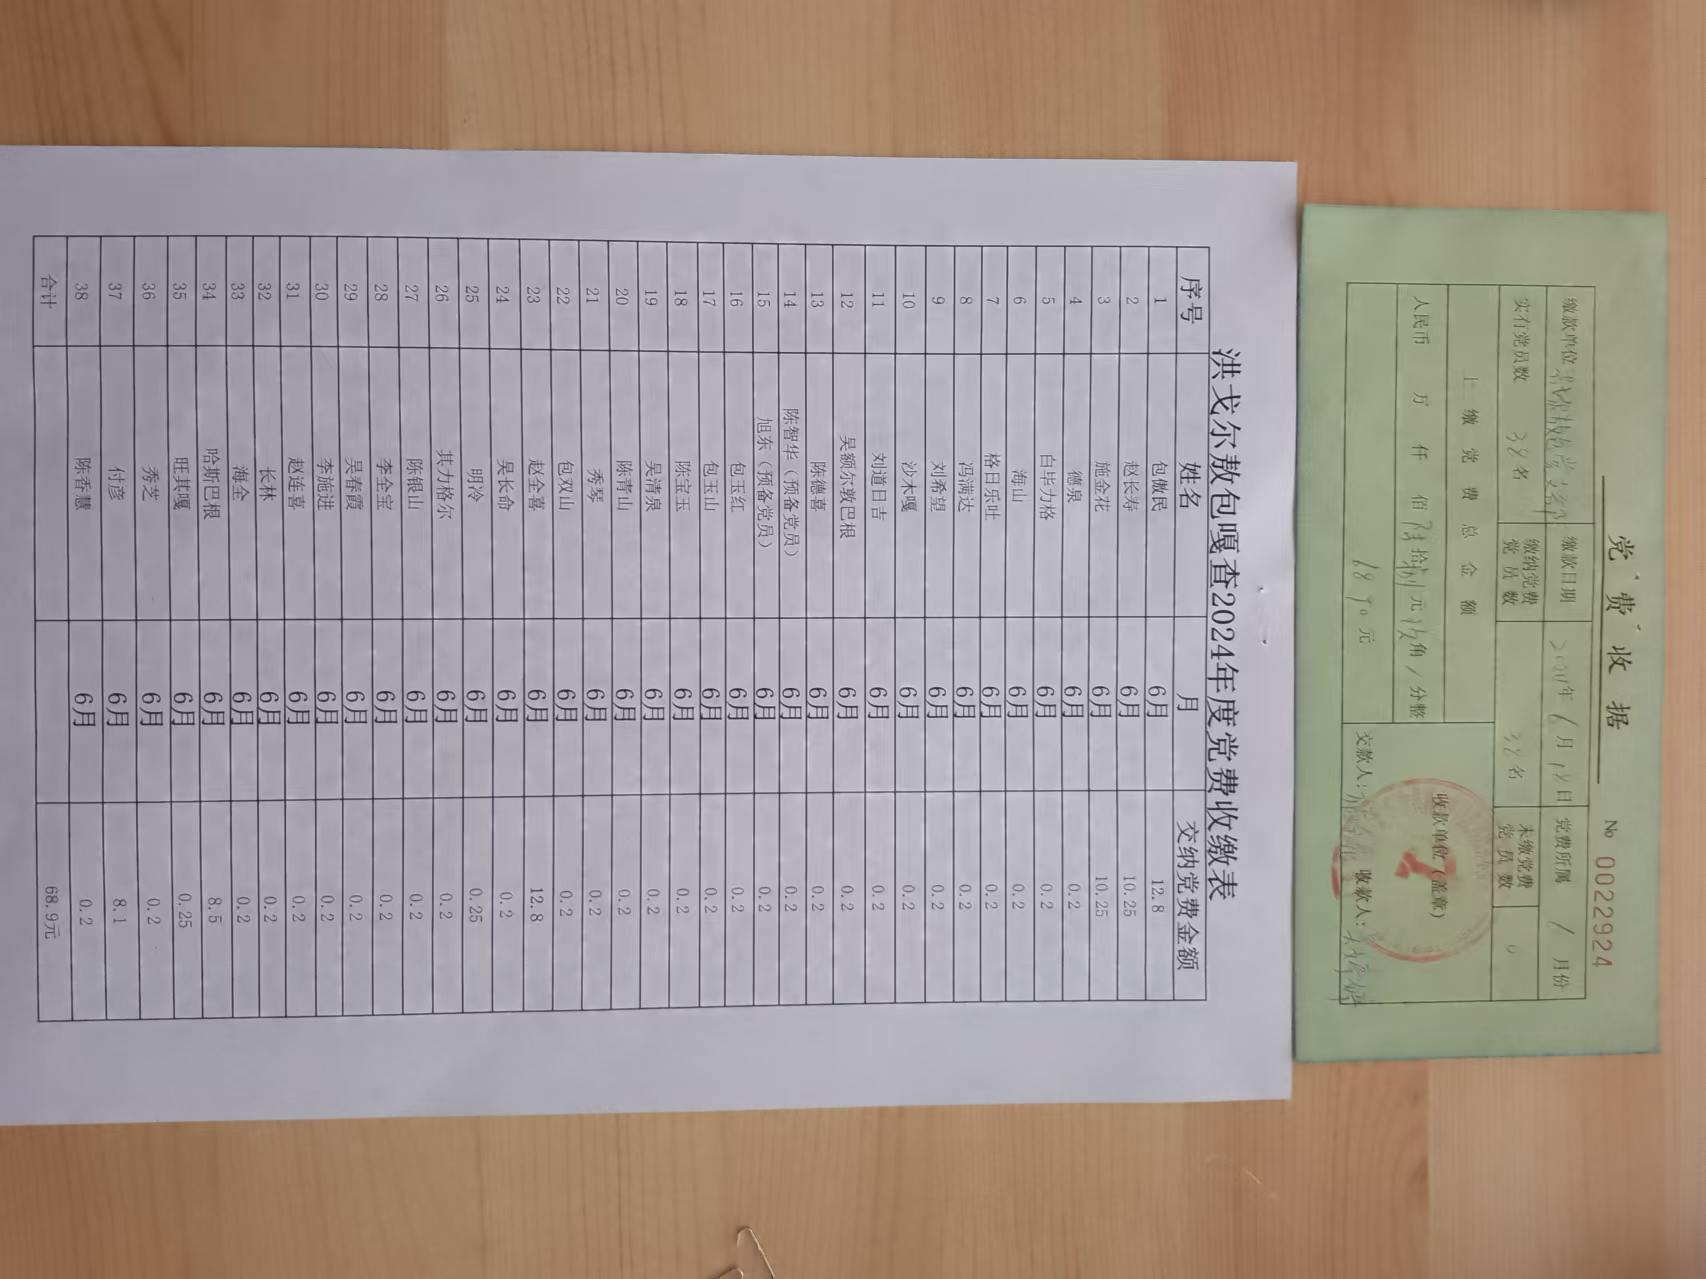 党费收据
№ 0022924
缴款单位 缴款日期 2024年6月18日 党费所属 6月份
实有党员数 38名 缴纳党费党员数 38名 未缴党费党员数 0
上缴党费总金额
人民币 万 仟 佰 陆拾捌元玖角/分整
68.90元
收款单位(盖章)
交款人: 收款人:
洪戈尔敖包嘎查2024年度党费收缴表
序号 姓名 月 交纳党费金额
1 包傲民 6月 12.8
2 赵长寿 6月 10.25
3 施金花 6月 10.25
4 德泉 6月 0.2
5 白毕力格 6月 0.2
6 海山 6月 0.2
7 格日乐吐 6月 0.2
8 冯满达 6月 0.2
9 刘希望 6月 0.2
10 沙木嘎 6月 0.2
11 刘道日吉 6月 0.2
12 吴额尔敦巴根 6月 0.2
13 陈德喜 6月 0.2
14 陈智华（预备党员） 6月 0.2
15 旭东（预备党员） 6月 0.2
16 包玉红 6月 0.2
17 包玉山 6月 0.2
18 陈宝玉 6月 0.2
19 吴清泉 6月 0.2
20 陈青山 6月 0.2
21 秀琴 6月 0.2
22 包双山 6月 0.2
23 赵全喜 6月 12.8
24 吴长命 6月 0.2
25 明冷 6月 0.25
26 其力格尔 6月 0.2
27 陈银山 6月 0.2
28 李全宝 6月 0.2
29 吴春霞 6月 0.2
30 李施进 6月 0.2
31 赵连喜 6月 0.2
32 长林 6月 0.2
33 海全 6月 0.2
34 哈斯巴根 6月 8.5
35 旺其嘎 6月 0.25
36 秀芝 6月 0.2
37 付彦 6月 8.1
38 陈香慧 6月 0.2
合计 68.9元